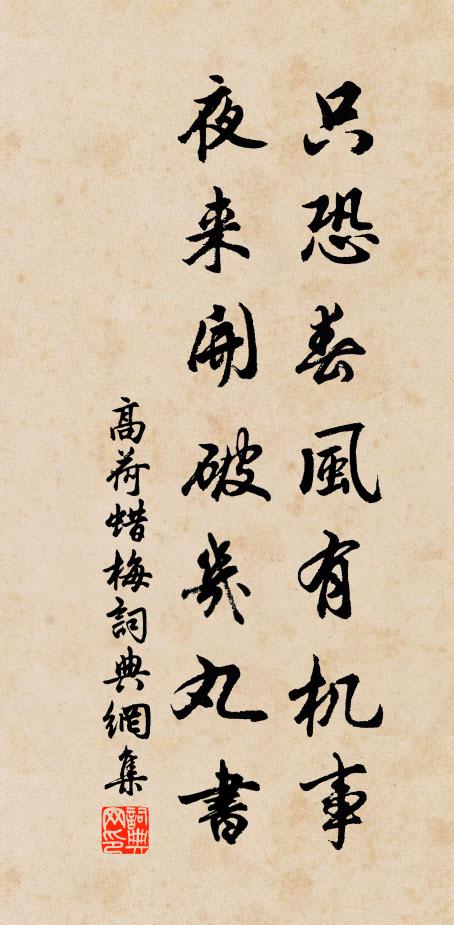 只恐春風有机事
夜来開破幾丸書
高荷蜡梅詞典網集
詞典
网印